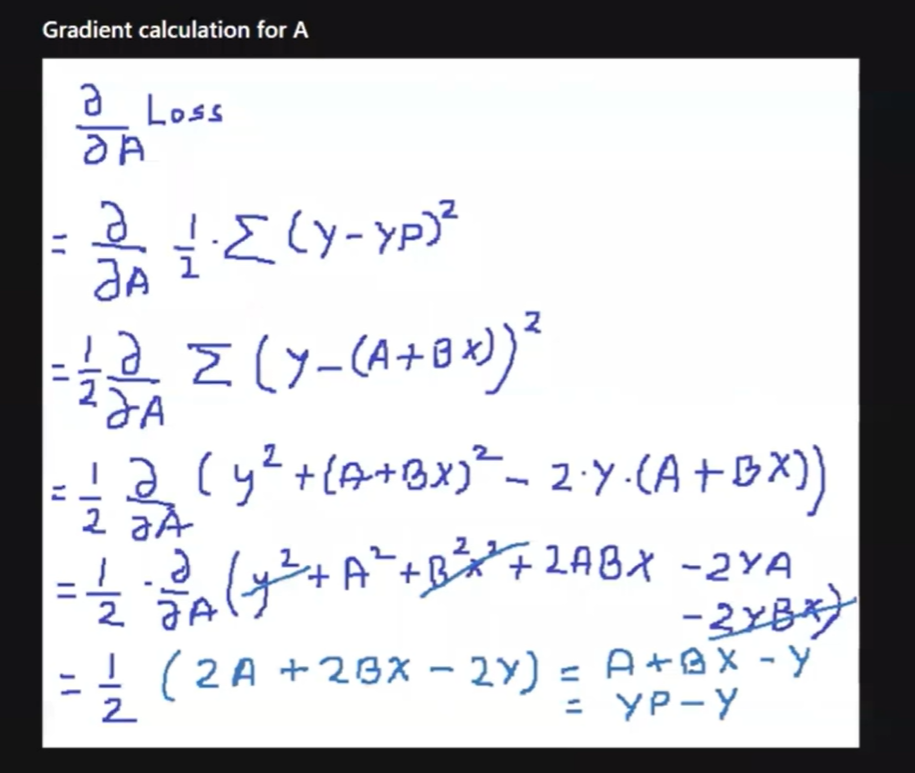 Gradient calculation for A
∂/∂A Loss
= ∂/∂A 1/2 · Σ (Y - YP)²
= 1/2 ∂/∂A Σ (Y - (A + BX))²
= 1/2 ∂/∂A (y² + (A + BX)² - 2·Y·(A + BX))
= 1/2 · ∂/∂A (y² + A² + B²x² + 2ABX - 2YA
- 2YBX)
= 1/2 (2A + 2BX - 2Y) = A + BX - Y
= YP - Y